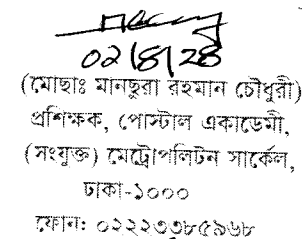 ০২/৪/২৪
(মোছাঃ মানছুরা রহমান চৌধুরী)
প্রশিক্ষক, পোস্টাল একাডেমী,
(সংযুক্ত) মেট্রোপলিটন সার্কেল,
ঢাকা-১০০০
ফোন: ০২২২৩৩৮৫৯৬৮